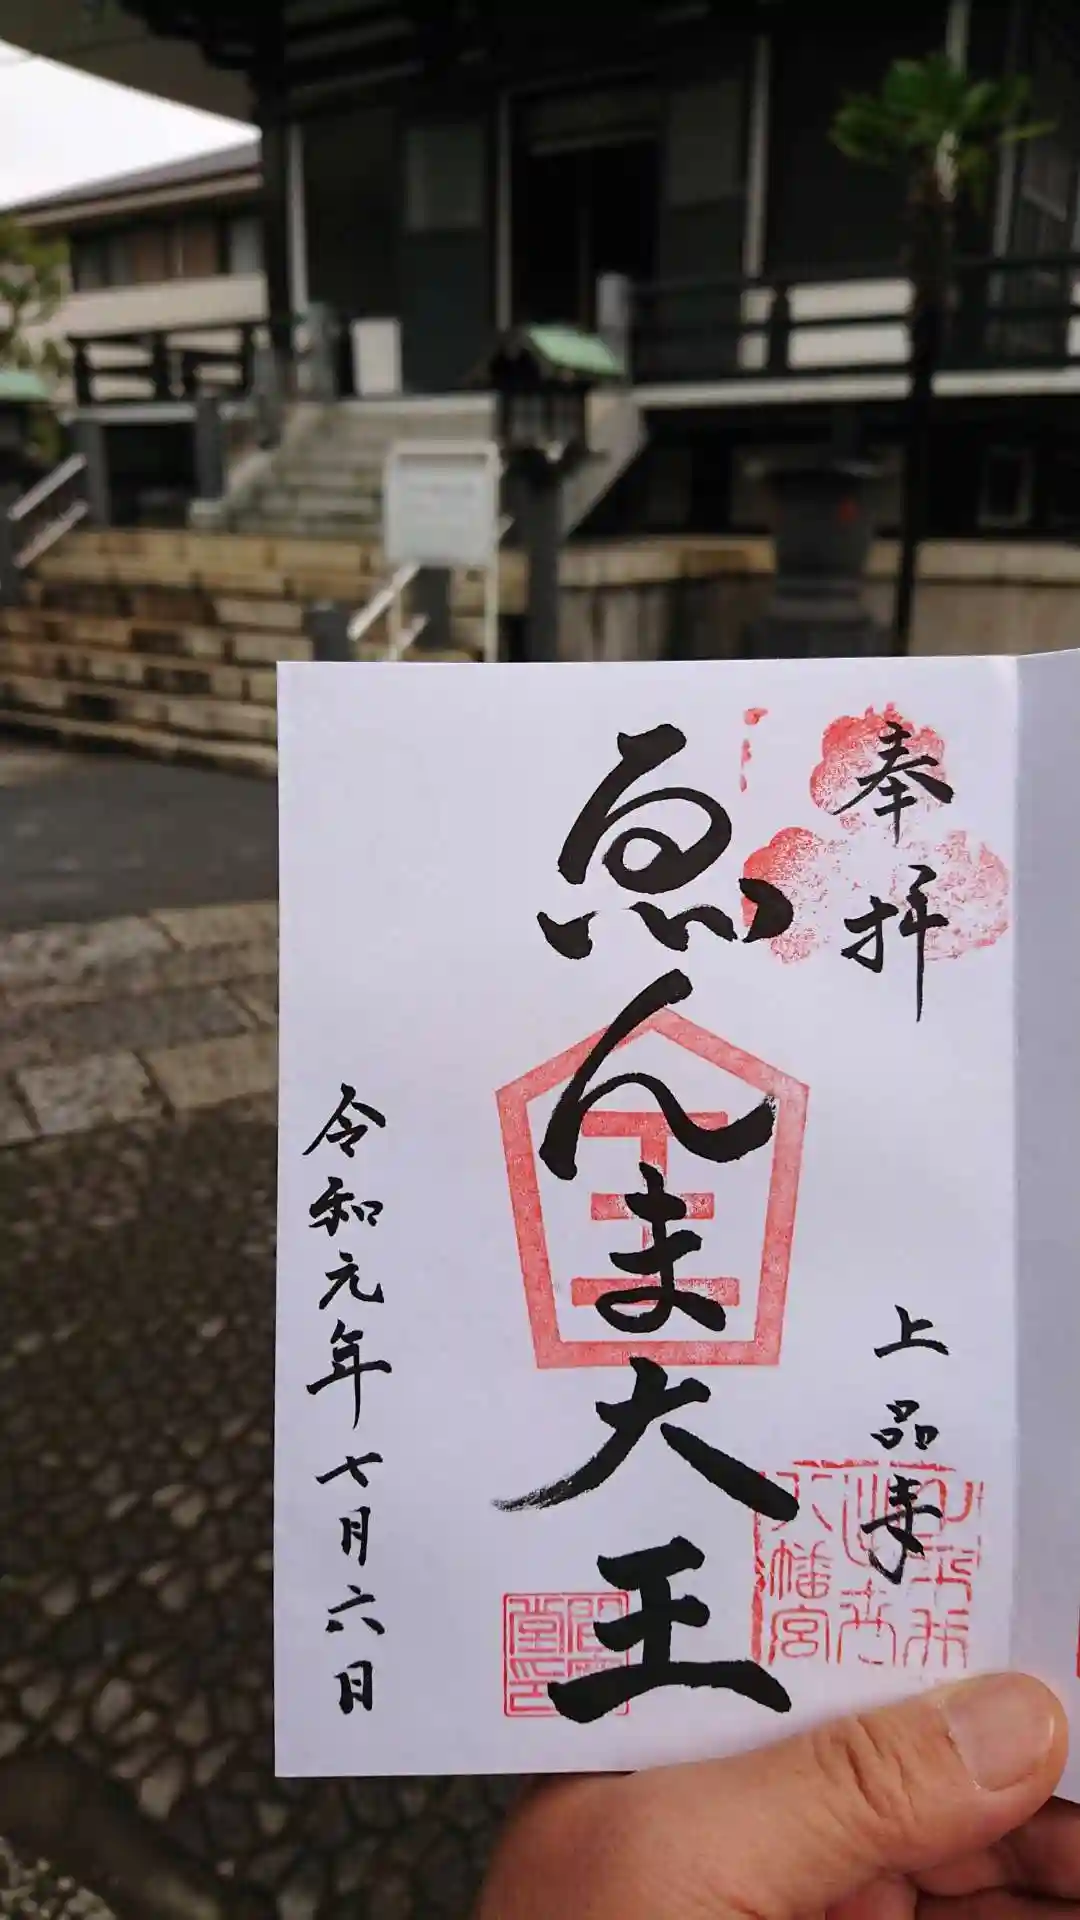 奉拝
上品寺
ゑんま大王
令和元年七月六日
王
八幡宮